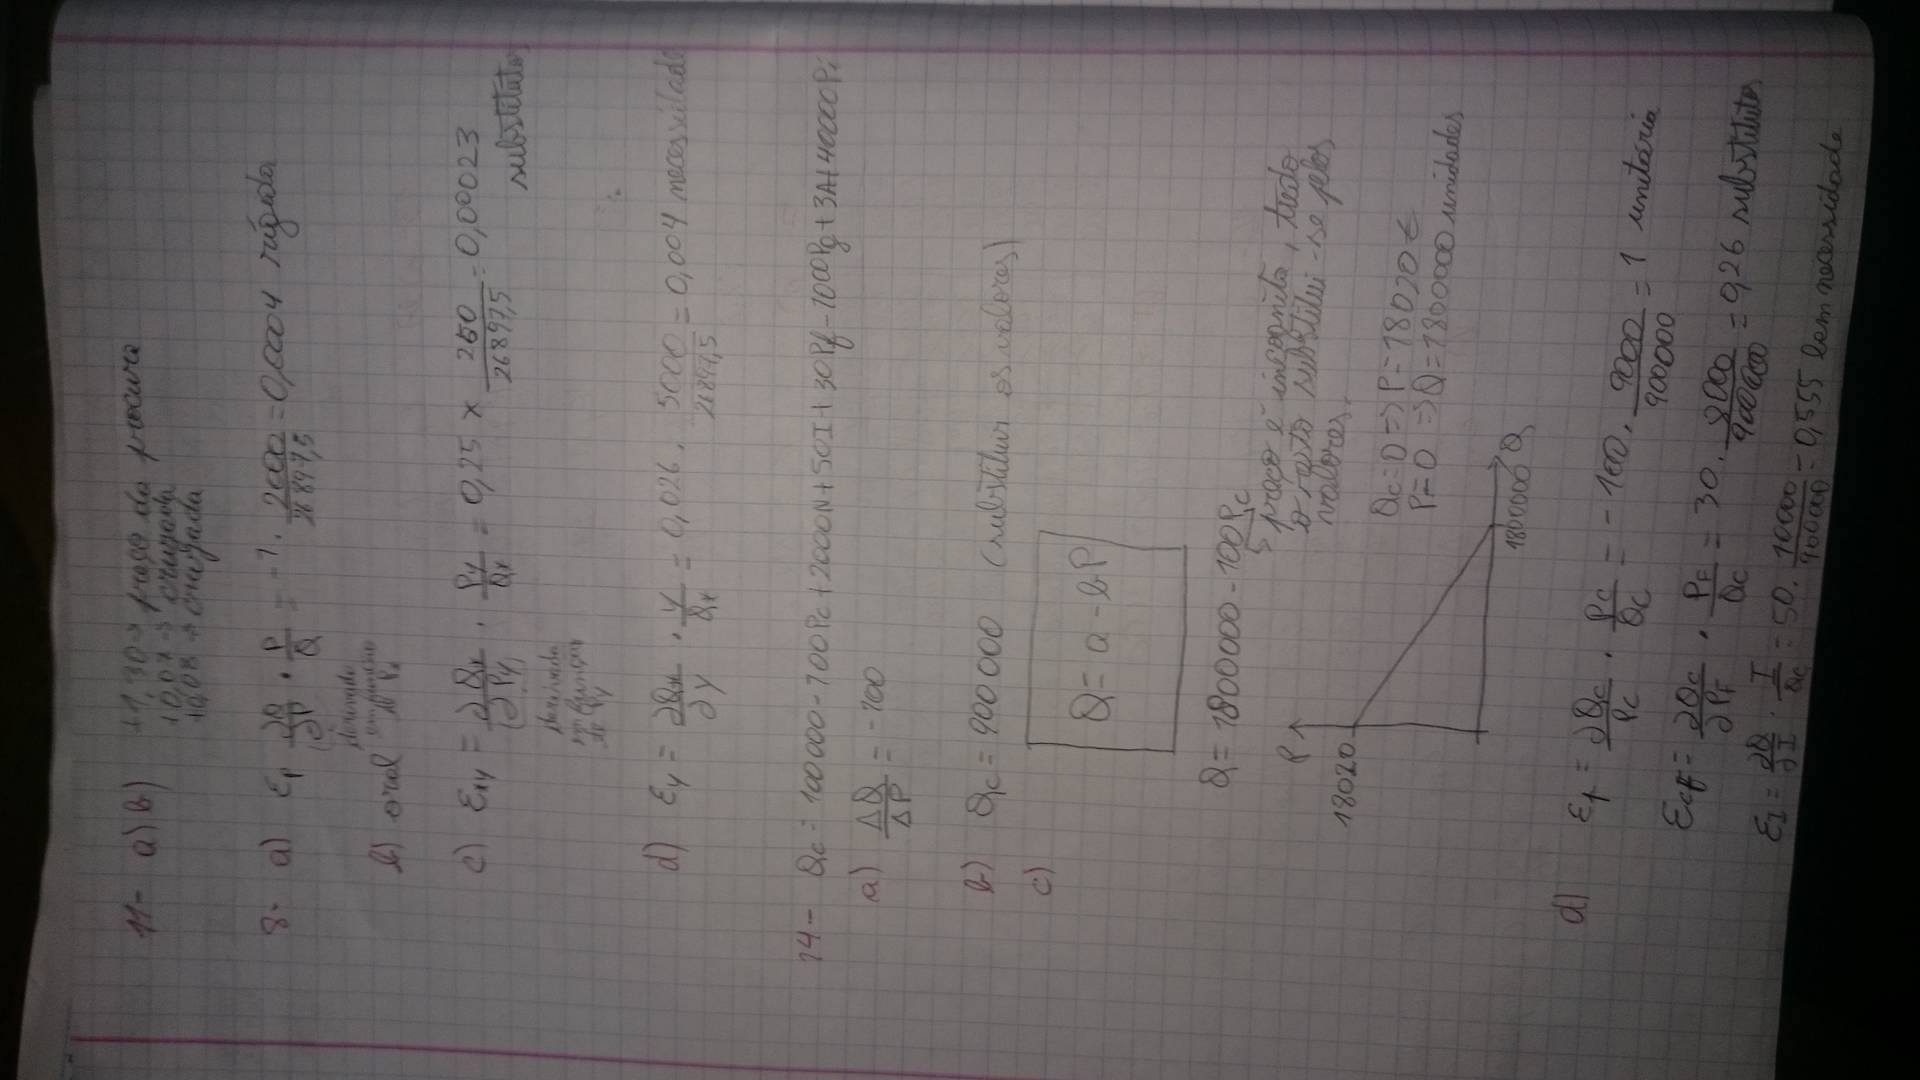 11- a) b) +1,30 → preço da procura
+0,07 → cruzada
+0,08 → cruzada
8- a) Ep ∂Q/∂P · P/Q = -1 · 2000/26897,5 = 0,0004 rígida
derivada em função de Px
b) oral
c) Exy = ∂Qx/∂Py · Py/Qx = 0,25 × 250/26897,5 = 0,000023
substitutos
derivada em função de Py
d) Ey = ∂Qx/∂Y · Y/Qx = 0,026 · 5000/26897,5 = 0,004 necessidade
14- Qc = 100000 - 100Pc + 2000N + 50I + 30Pf - 1000Pg + 3A + 40000Pi
a) ΔQ/ΔP = -100
b) Qc = 900 000 (substituir os valores)
c)
Q = a - bP
Q = 1800000 - 100Pc
↳ preço é incógnita, tudo
o resto substitui-se pelos
valores.
Qc = 0 => P = 18020 €
P = 0 => Q = 1800000 unidades
P
18020
1800000 Q
d) Ep = ∂Qc/Pc · Pc/Qc = -100 · 9000/900000 = 1 unitária
Ecf = ∂Qc/∂PF · PF/Qc = 30 · 8000/900000 = 0,26 substitutos
EI = ∂Q/∂I · I/Qc = 50 · 10000/900000 = 0,555 bem necessidade